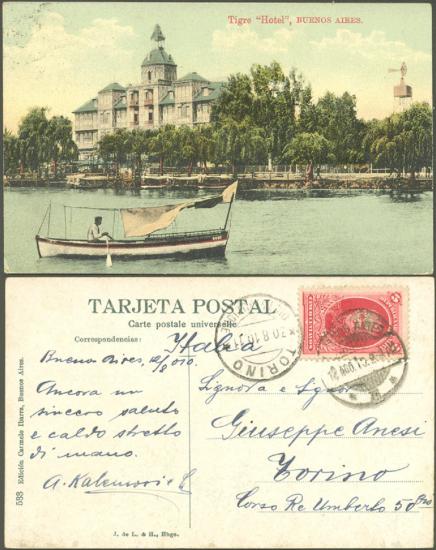 Tigre "Hotel", BUENOS AIRES.
TARJETA POSTAL
Carte postale universelle
Correspondencias:
Italia
Buenos Aires, 12/8 010.
Ancora un
sincero saluto
e caldo stretto
di mano.
A.
Signora e Signor
Giuseppe Anesi
Torino
Corso Re Umberto 50
TORINO
533 Edición Carmelo Ibarra, Buenos Aires.
J. de L. & H., Hbgo.